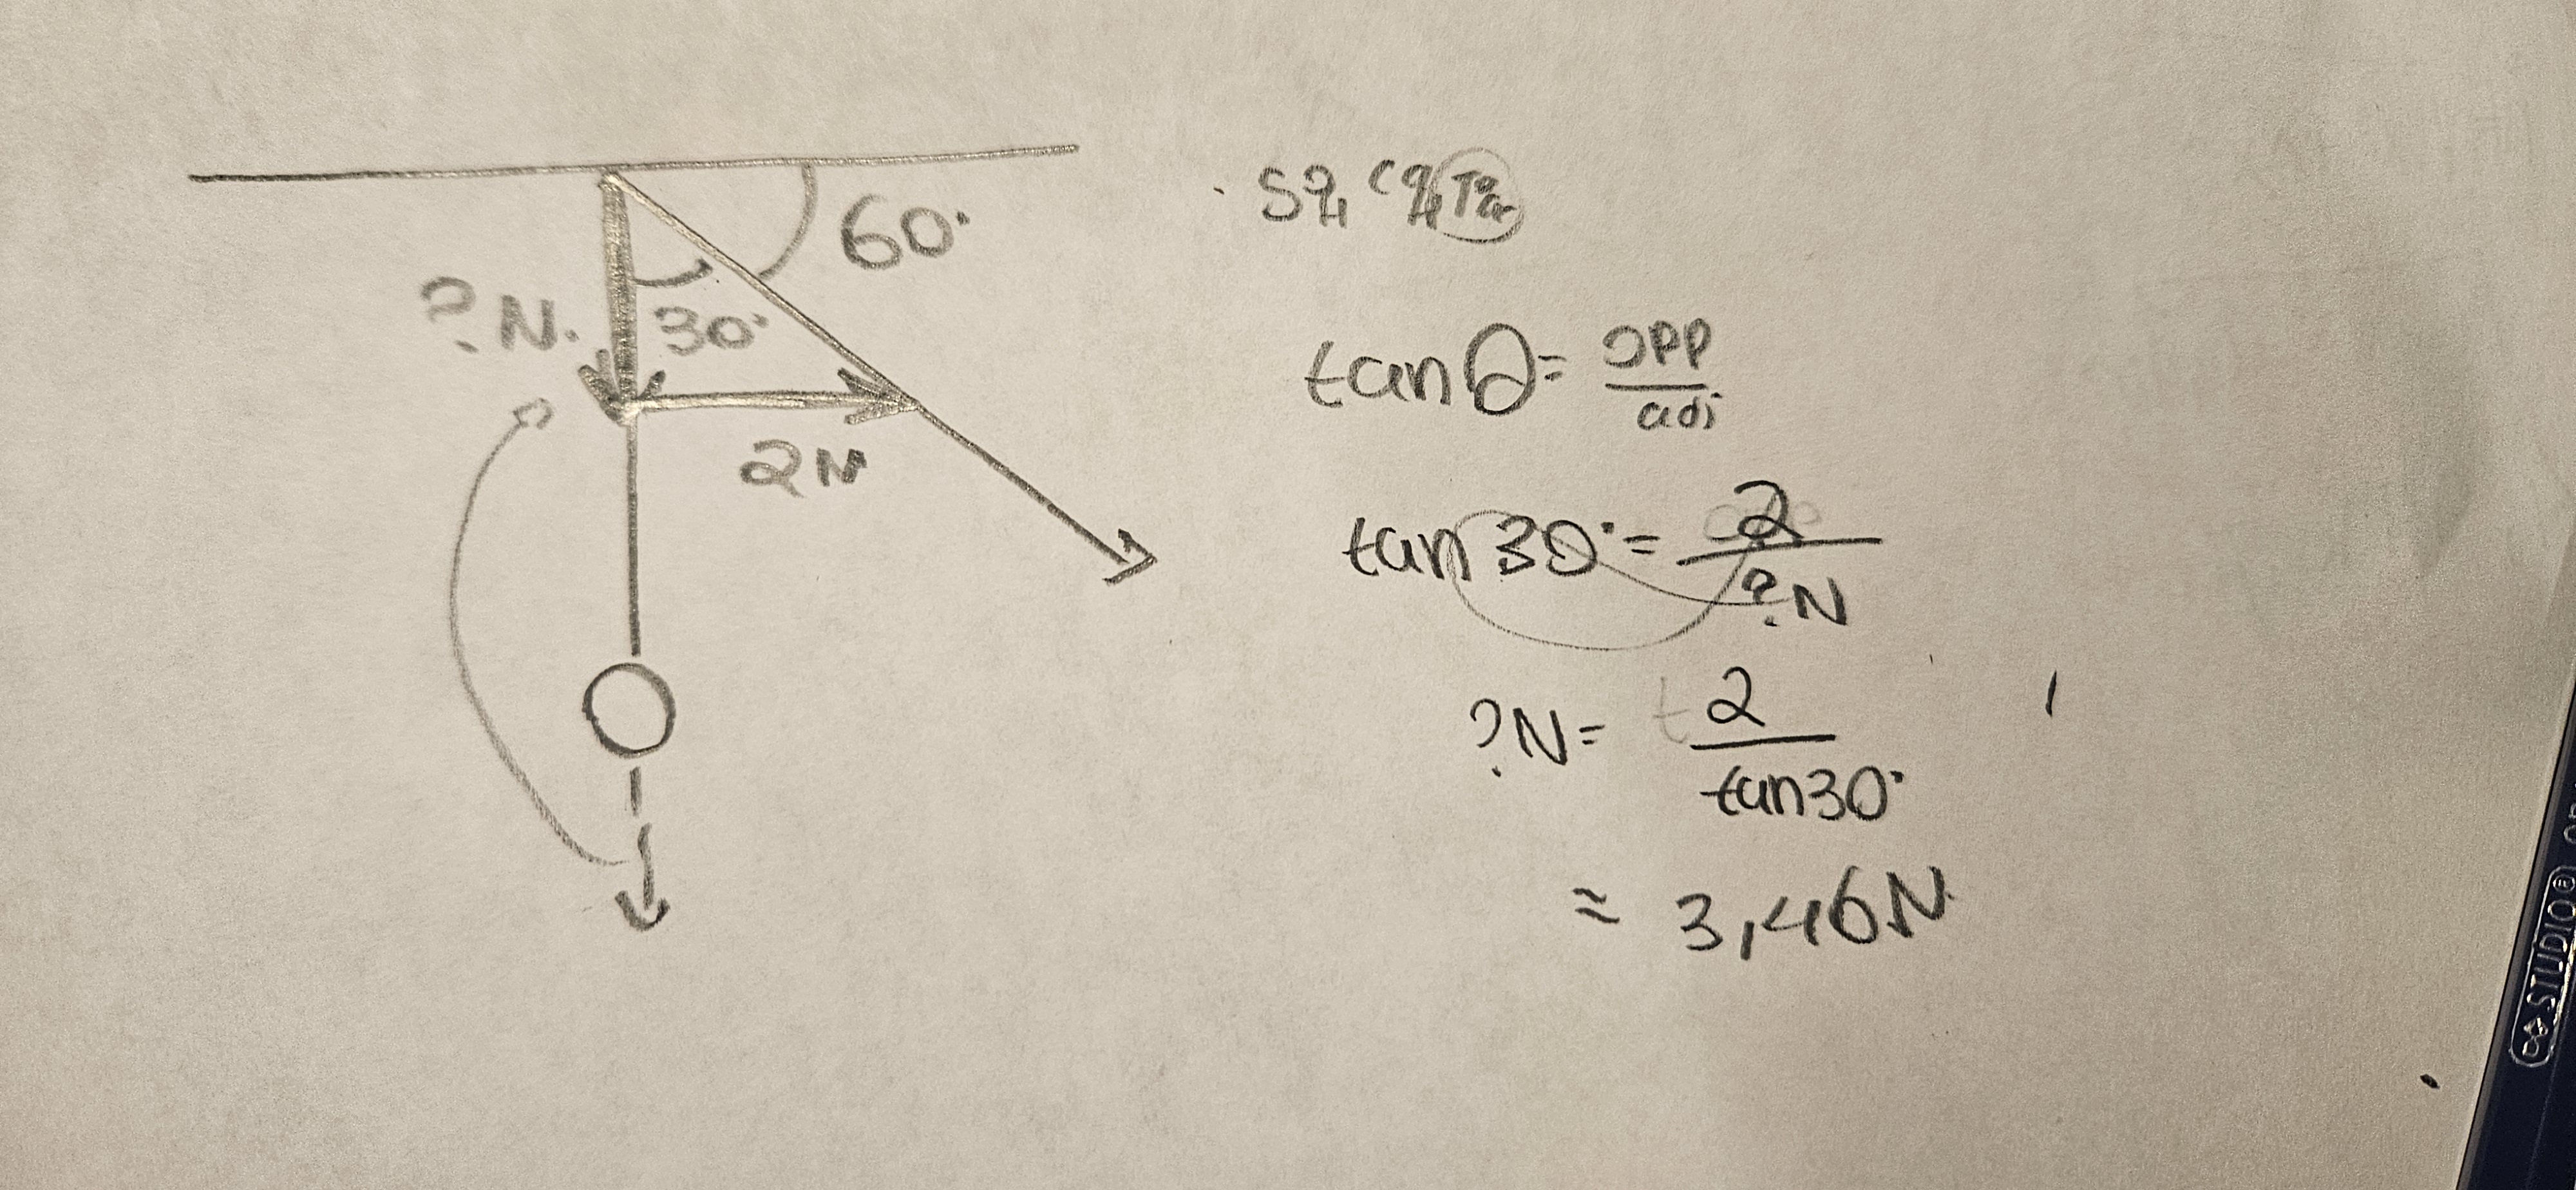 60°
?N.
30°
2N
S o/H C a/H T o/a
tanθ = opp/adj
tan 30° = 2/?N
?N = 2/tan30°
≈ 3,46N
STUDIO